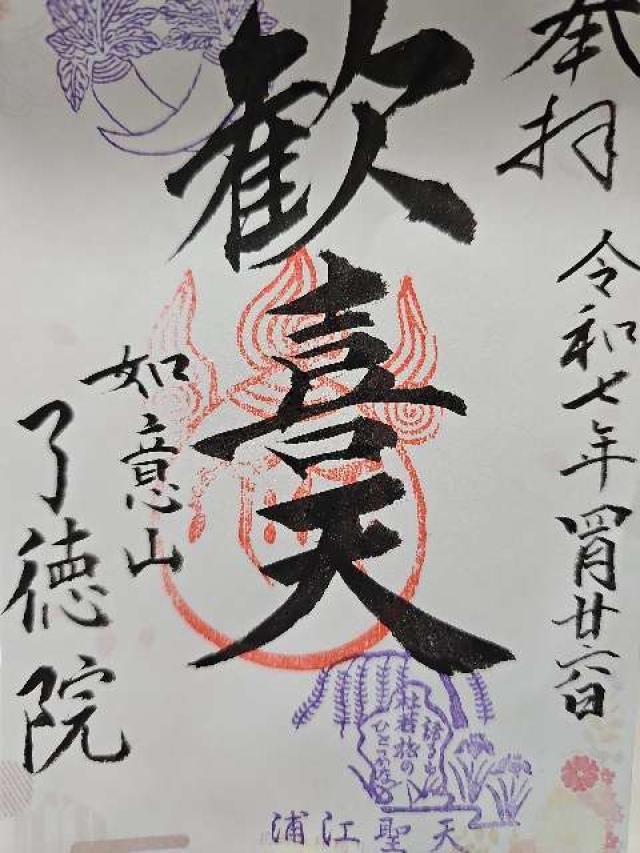 奉拝
令和七年四月廿六日
歓喜天
如意山
了徳院
語るも
杜若旅の
ひとつかな
浦江聖天